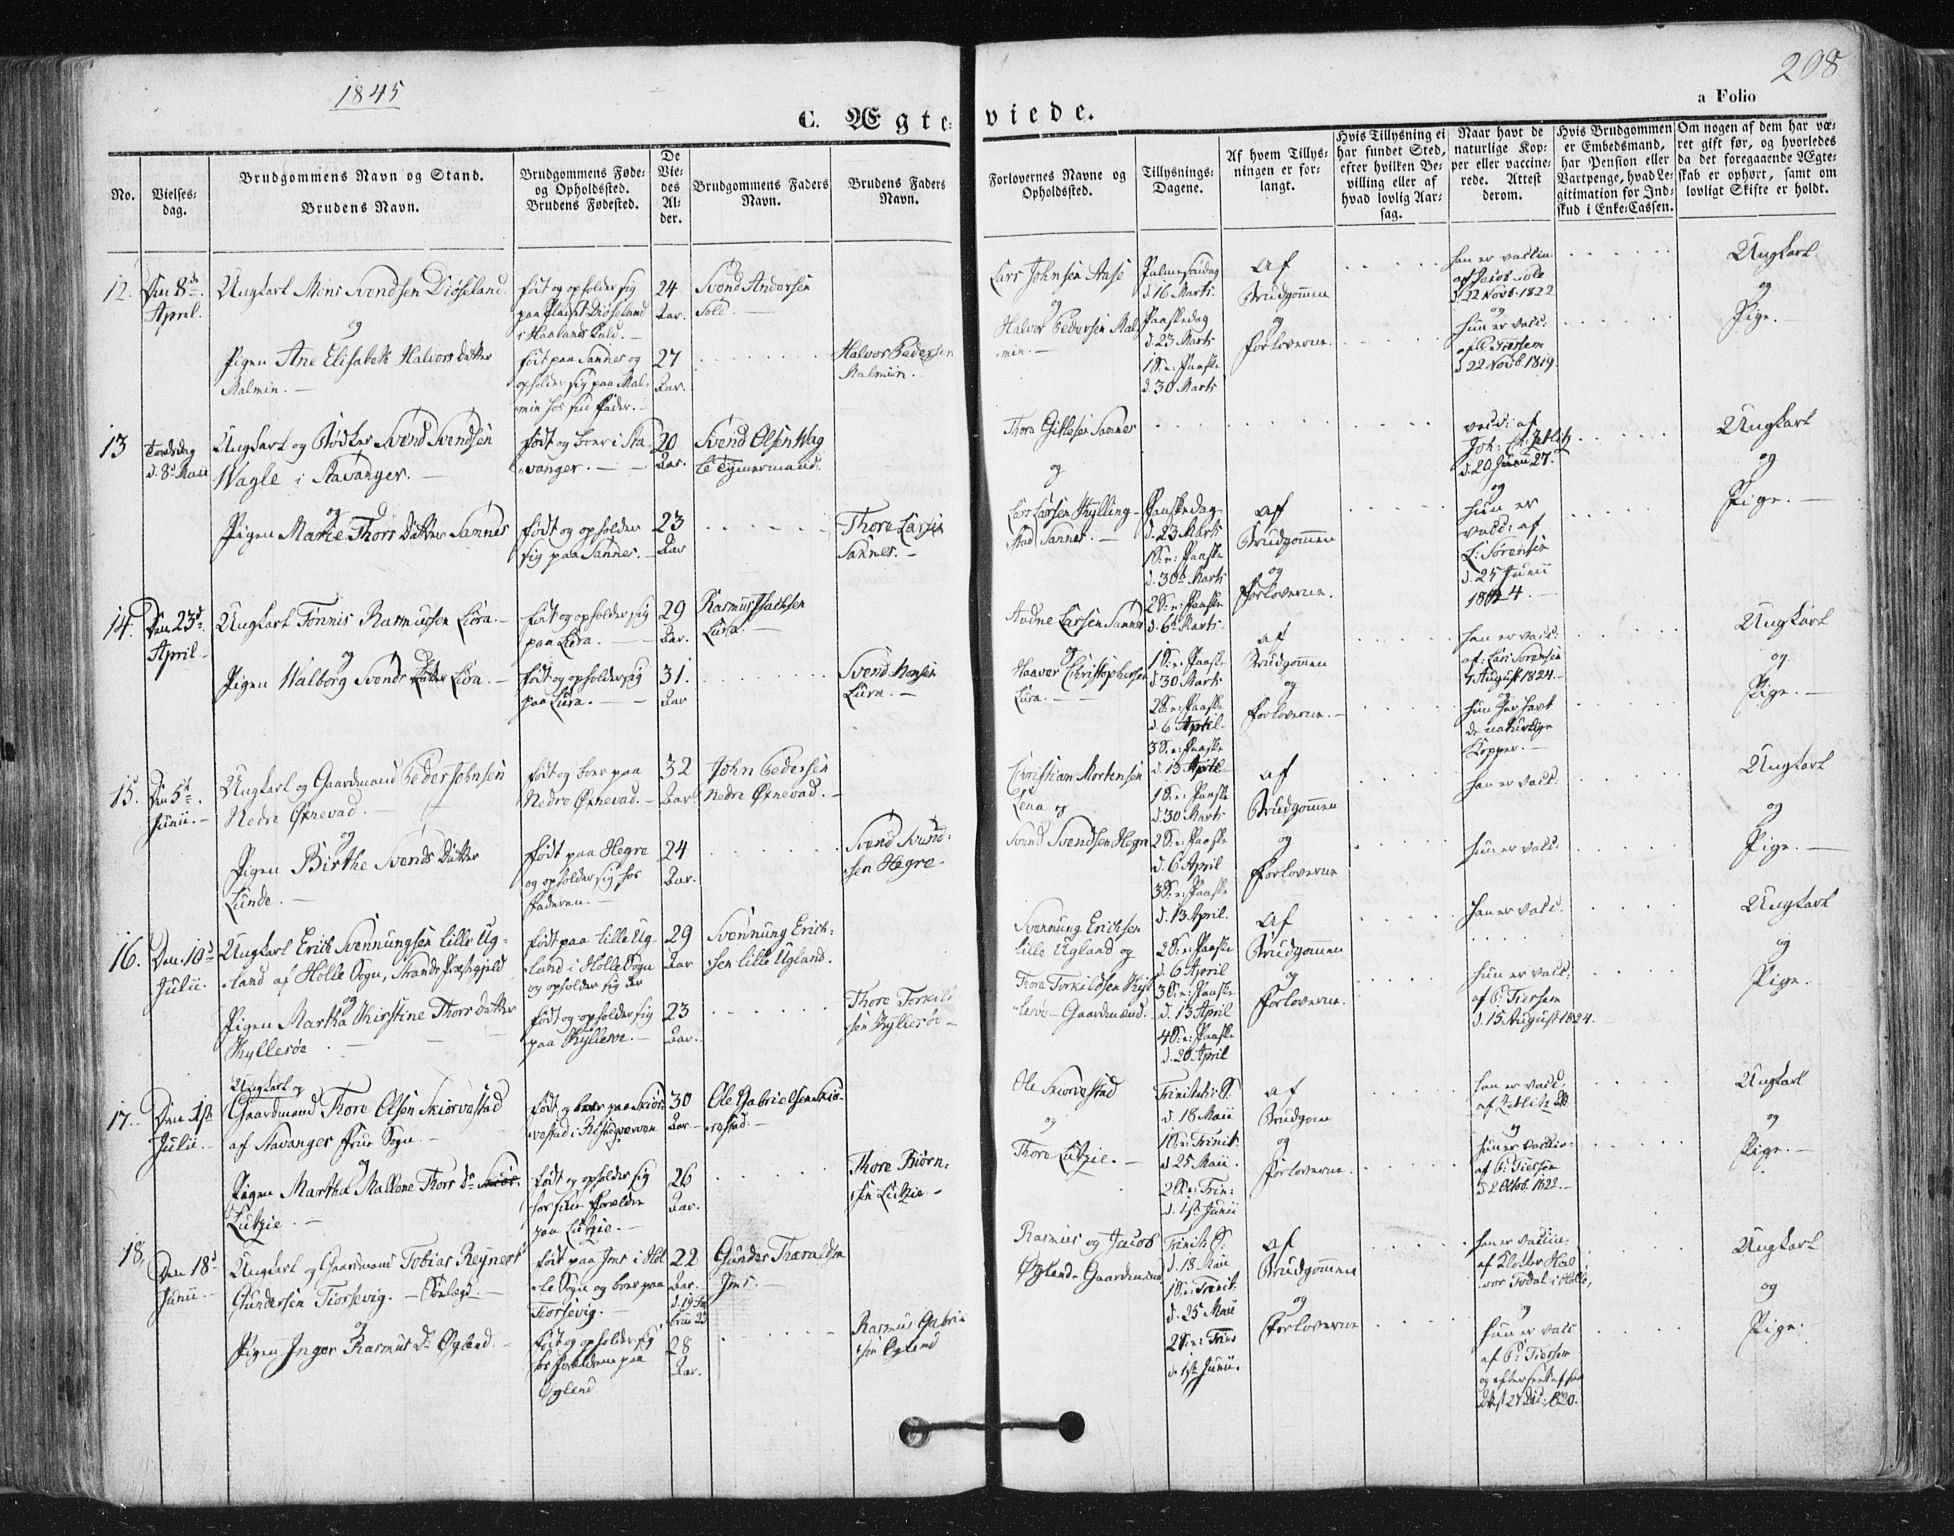 1845
208
a Folio
C. Ægteviede.
No.
Vielses-
dag.
Brudgommens Navn og Stand.
Brudens Navn.
Brudgommens Føde-
og Opholdssted.
Brudens Fødested.
De
Vie-
des
Al-
der.
Brudgommens Faders
Navn.
Brudens Faders
Navn.
Forlovernes Navne og
Opholdssted.
Tillysnings-
Dagene.
Af hvem Tillys-
ningen er for-
langt.
Hvis Tillysning ei
har fundet Sted,
efter hvilken Be-
villing eller af
hvad lovlig Aar-
sag.
Naar havt de
naturlige Kop-
per eller vaccine-
rede. Attest
derom.
Hvis Brudgommen
er Embedsmand,
har Pension eller
Vartpenge, hvad Le-
gitimation for Ind-
skud i Enke-Cassen.
Om nogen af dem har væ-
ret gift før, og hvorledes
da det foregaaende Ægte-
skab er ophørt, samt om
lovligt Skifte er holdt.
12.
Den 8de
April.
Ungkarl Mons Svendsen Diøseland
og
Pigen Ane Elisabek Halvors Datter
Malmin.
født og opholder sig
paa Pladset Diøseland
i Haalands
født paa Sannes og
opholder sig paa Mal-
min hos sin Fader.
24
Aar.
27
Aar.
Svend Andersen
Halvor Pedersen
Malmin.
Lars Johnsen Aase
og
Halvor Pedersen Mal-
min.
Palmesøndag
d. 16 Marts
Paaskedag
d. 23 Marts
1 S. e: Paaske
d. 30 Marts
Af
Brudgommen
og
Forloverne.
han er vaccin.
af Jacob
d. 22 Novb. 1822
og
hun er vacc:
af P: Tiersem
d 22 Novb. 1819.
Ungkarl
og
Pige.
13
Torsdag
d. 8de Maii
Ungkarl og Bødker Svend Svendsen
Wagle i Stavanger.
og
Pigen Marie Thors Datter Sannes
født og boer i Sta-
vanger.
født og opholder
sig paa Sannes.
20
Aar.
23
Aar
Svend Olsen Wag
le Tømermand.
Thore Larsen
Sannes.
Thore Gitlesen Sannes
og
Lars Larsen Kylling-
stad Sannes.
Paaskedag
d. 23 Marts
1 S. e: Paaske
d. 30te Marts
2 S. e: Paaske
d. 6te Marts.
af
Brudgommen
og
Forloverne.
vacc: af
Joh: Zetlitz
d. 20 Junii 27.
og
hun er
vacc: af
L: Sørensen
d. 25 Junii
1824.
Ungkarl
og
Pige.
14.
Den 23de
April
Ungkarl Tønnis Rasmussen Lura.
og
Pigen Walborg Svends Datter Lura.
født og opholder sig
paa Lura.
født og opholder sig
paa Lura.
29
Aar.
31.
Aar
Rasmus Isachsen
Lura.
Svend
Lura.
Audne Larsen Sannes
og
Haaver Christophersen
Lura.
1 S. e: Paaske
d. 30 Marts
2 S. e: Paaske
d. 6 April
3 S. e: Paaske
d. 13 April
af
Brudgommen
og
Forloverne.
han er vacc.
af: Lars Sørensen
August 1824.
og
hun har havt
de naturlige
Kopper.
Ungkarl
og
Pige.
15.
Den 5te
Junii.
Ungkarl og Gaardmand Peder Johnsen
Nedre Øxnevad.
og
Pigen Birthe Svends Datter
Lunde.
født og boer paa
Nedre Øxnevad.
født paa Hegre
og opholder sig hos
Faderen.
32
Aar.
24
Aar.
John Pedersen
Nedre Øxnevad.
Svend Svend-
sen Hegre
Christian Mortensen
Lena og
Svend Svendsen Hegre
1 S. e: Paaske
d. 30 Marts
2 S. e: Paaske
d. 6 April
3 S. e: Paaske
d. 13 April.
af
Brudgommen
og
Forloverne
han er vacc.
hun er vacc.
Ungkarl
og
Pige.
16.
Den 10de
Julii.
Ungkarl Erick Svennungsen Lille Ug-
land af Holle Sogn, Strands Præstegjeld
og
Pigen Martha Kirstine Thors Datter
Kyllesøe
født paa Lille Ug-
land i Holle Sogn
og opholder sig der
født og opholder sig
paa Kyllesøe.
29
Aar
23
Aar.
Svennung Erick-
sen Lille Ugland.
Thore Torkild
sen Kyllesøe
Svennung Ericksen
Lille Ugland og
Thore Torkildsen Kyl
lesøe Gaardmænd.
2 S. e: Paaske
d. 6 April
3 S. e: Paaske
d. 13 April
4 S. e: Paaske
d. 20 April
Af
Brudgommen
og
Forloverne.
han er vacc.
hun er vacc.
af P: Tiersem
d. 15 August 1824.
Ungkarl
og
Pige.
17.
Den 1ste
Julii
Ungkarl og
Gaardmand Thore Olsen Skiørvestad
af Stavanger Frue Sogn.
og
Pigen Martha Mallene Thors Dr
Lutzie.
født og boer paa Skiør-
vestad i
født og opholder sig
hos sine Forældre
paa Lutzie.
30
Aar
26
Aar.
Ole Gabrielsen Skiør-
vestad.
Thore Biørn-
sen Lutzie
Ole Skiørvestad
og
Thore Lutzie.
Trinitatis S.
d. 18 Maii
1 S. e: Trinit:
d 25 Maii.
2 S. e: Trin:
d. 1ste Junii
af
Brudgom
og
Forloverne.
han er vacc.
af Zetlitz
og
hun er vaccin.
af P: Tiersem
d 2 Octob. 1822.
Ungkarl
og
Pige.
18,
Den 18de
Junii
Ungkarl og Gaardmand Tobias Reynert
Gundersen Tiorsevig.
og
Pigen Inger Rasmus Dr Øglend.
født paa Jms i Hol
le Sogn og boer paa
Tiorsevig.
født og opholder sig
hos Forældrene paa
Øglend
22
Aar.
28
Aar.
Gunder Thoraldsen
Jms.
Rasmus Gabriel
sen Øglend
Rasmus og Jacob
Øglend Gaardmænd
Trinit. S:
d. 18 Maii
1 S. e: Trinit.
d. 25 Maii
2 S. e: Trin
d. 1ste Junii.
af
Brudgommen
og
Forloverne
han er vaccin:
af Klokker Hal
vor Todal i Holle,
og
hun er vacc
af P: Tiersem
Ungkarl
og
Pige.